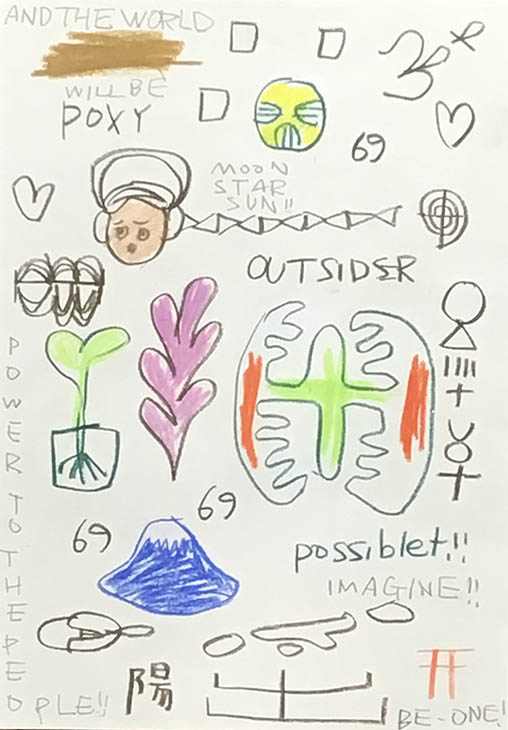 AND THE WORLD
WILL BE
POXY
69
MOON
STAR
SUN!!
OUTSIDER
POWER TO THE PEOPLE!!
69
69
possiblet!!
IMAGINE!!
陽
BE-ONE!